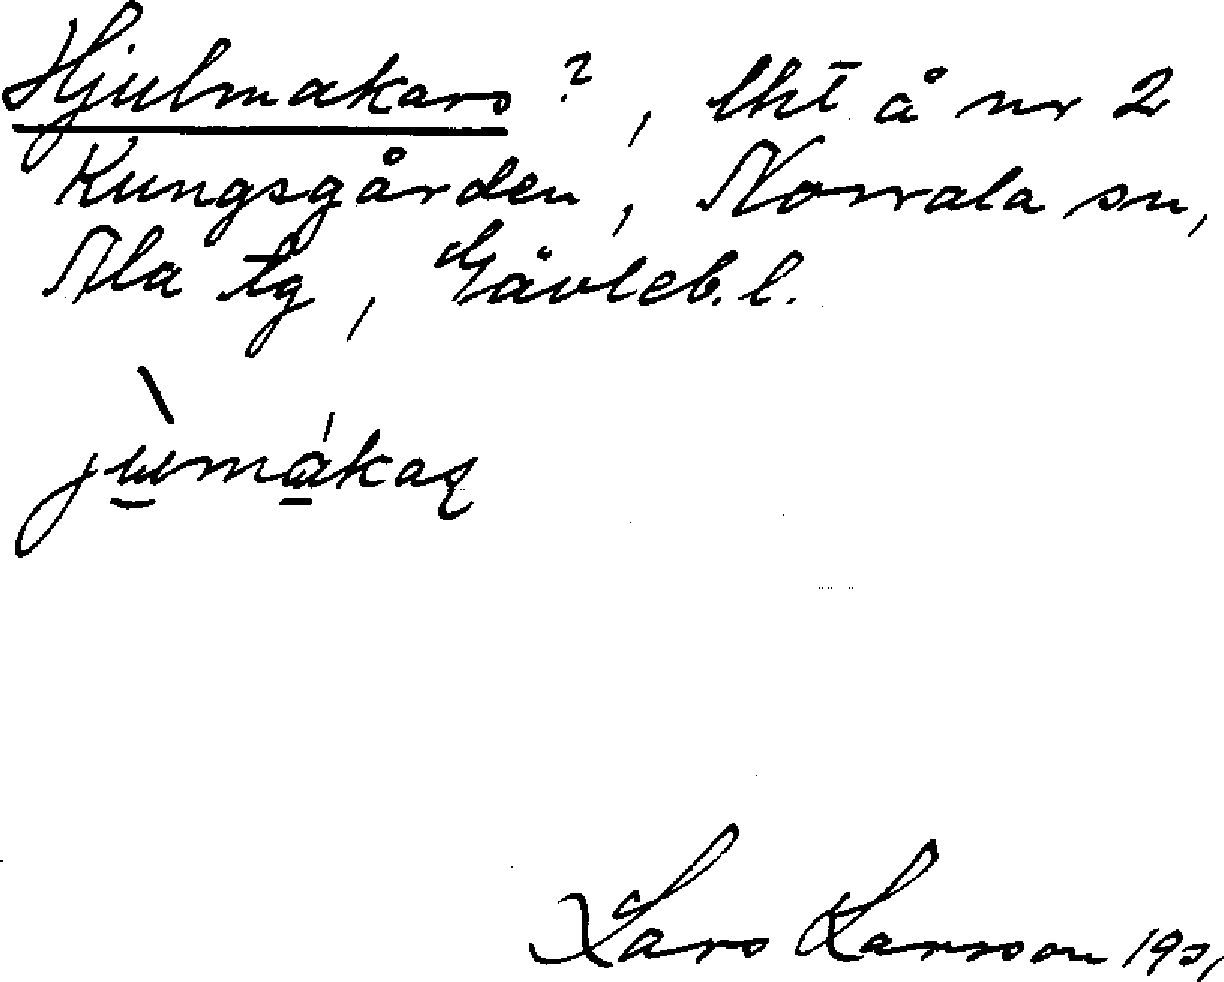 Hjulmakars ?, lht å nr 2
Kungsgården, Norrala sn,
Ala tg, Gävleb. l.
Lars Larsson